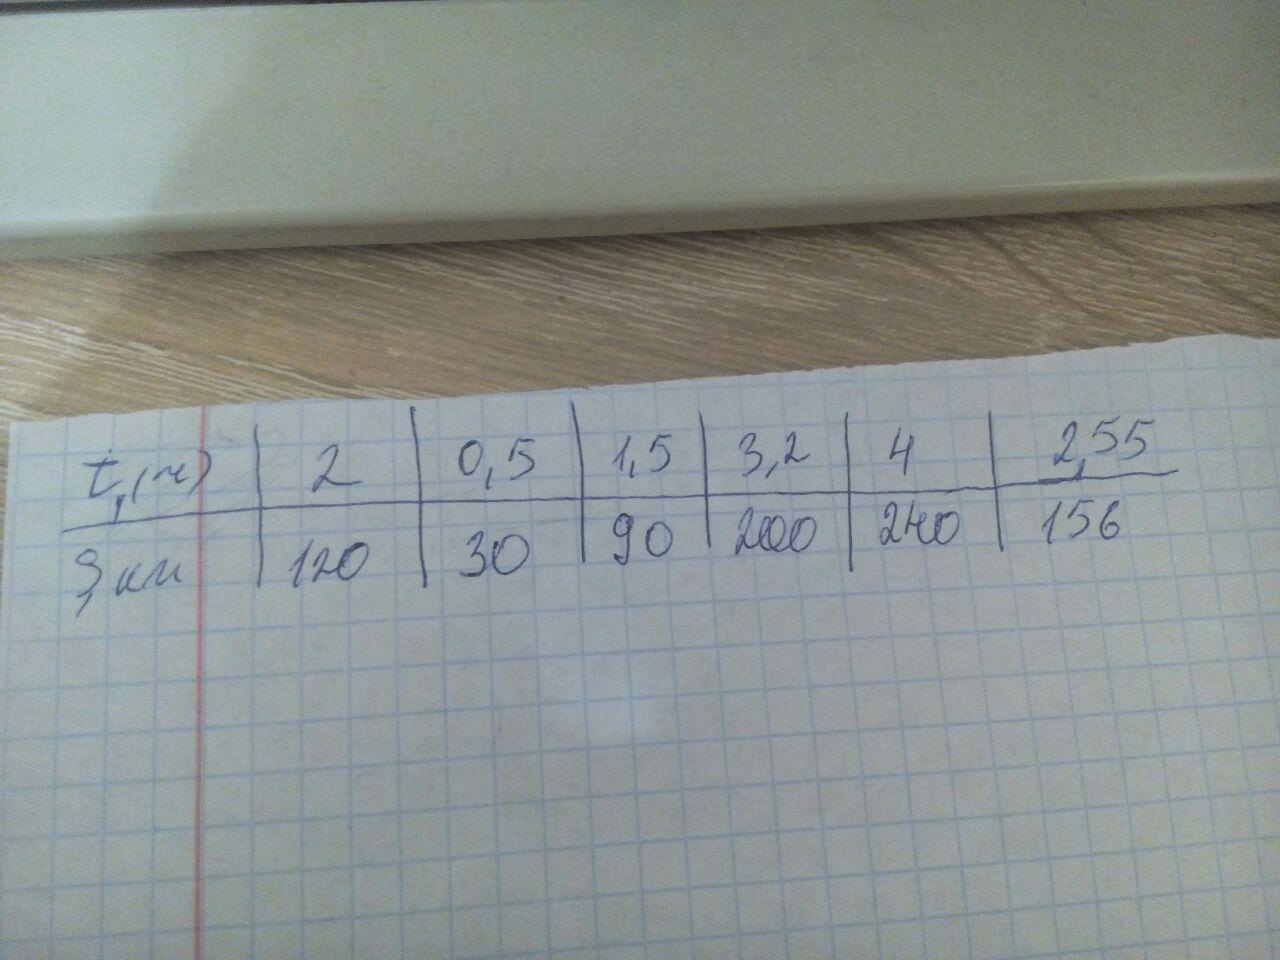 t, (ч) 2 0,5 1,5 3,2 4 2,55
S, км 120 30 90 200 240 156